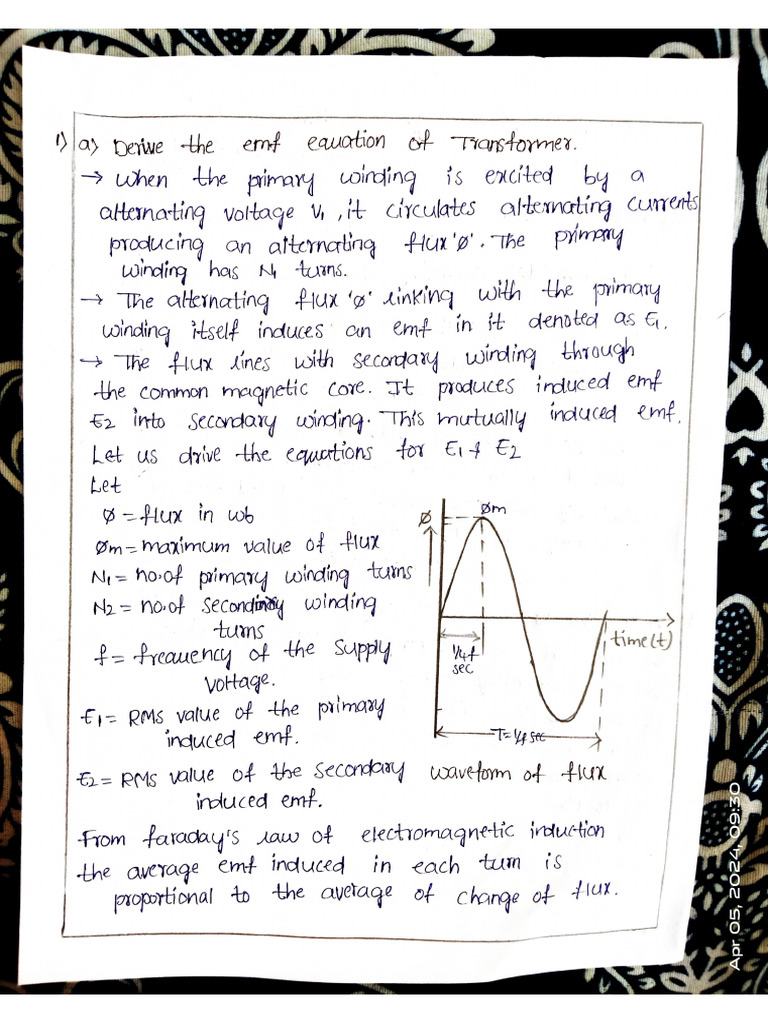 1) a) Derive the emf equation of Transformer.
→ When the primary winding is excited by a
alternating voltage V1, it circulates alternating currents
producing an alternating flux 'Ø'. The primary
winding has N1 turns.
→ The alternating flux 'Ø' linking with the primary
winding itself induces an emf in it denoted as E1.
→ The flux lines with secondary winding through
the common magnetic core. It produces induced emf
E2 into secondary winding. This mutually induced emf.
Let us drive the equations for E1 & E2
Let
Ø = flux in wb
Øm = maximum value of flux
N1 = no.of primary winding turns
N2 = no.of secondary winding
turns
f = frequency of the supply
voltage.
E1 = RMS value of the primary
induced emf.
E2 = RMS value of the secondary
induced emf.
Ø
Øm
time(t)
1/4f
sec
T = 1/f sec
waveform of flux
From faraday's law of electromagnetic induction
the average emf induced in each turn is
proportional to the average of change of flux.
Apr 05, 2024, 09:30